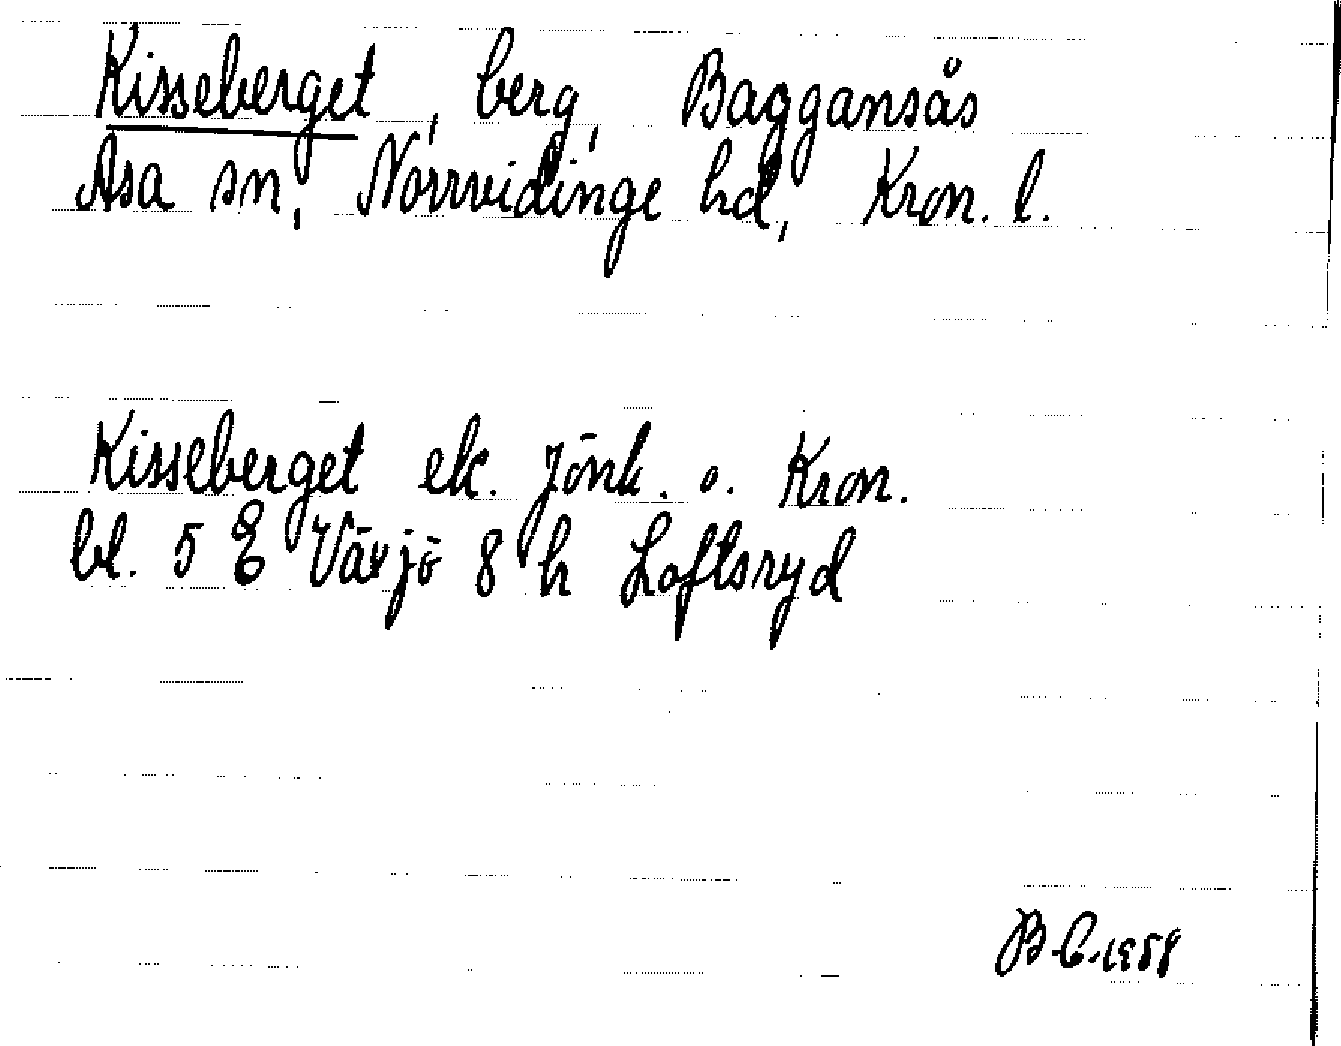 Kisseberget, berg, Baggansås
Asa sn, Norrvidinge hd, Kron. l.
Kisseberget ek. Jönk. o. Kron.
bl. 5 E Växjö 8 h Loftsryd
B.C. 1958